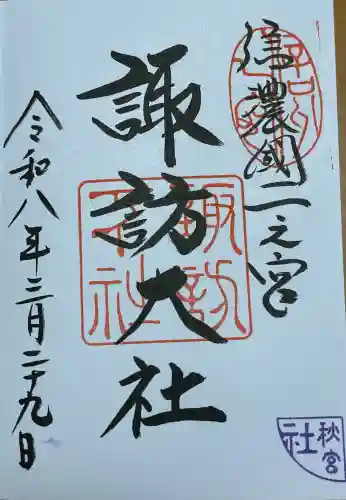 信濃國二之宮
諏訪大社
令和八年三月二十九日
諏訪
大社
秋宮
社